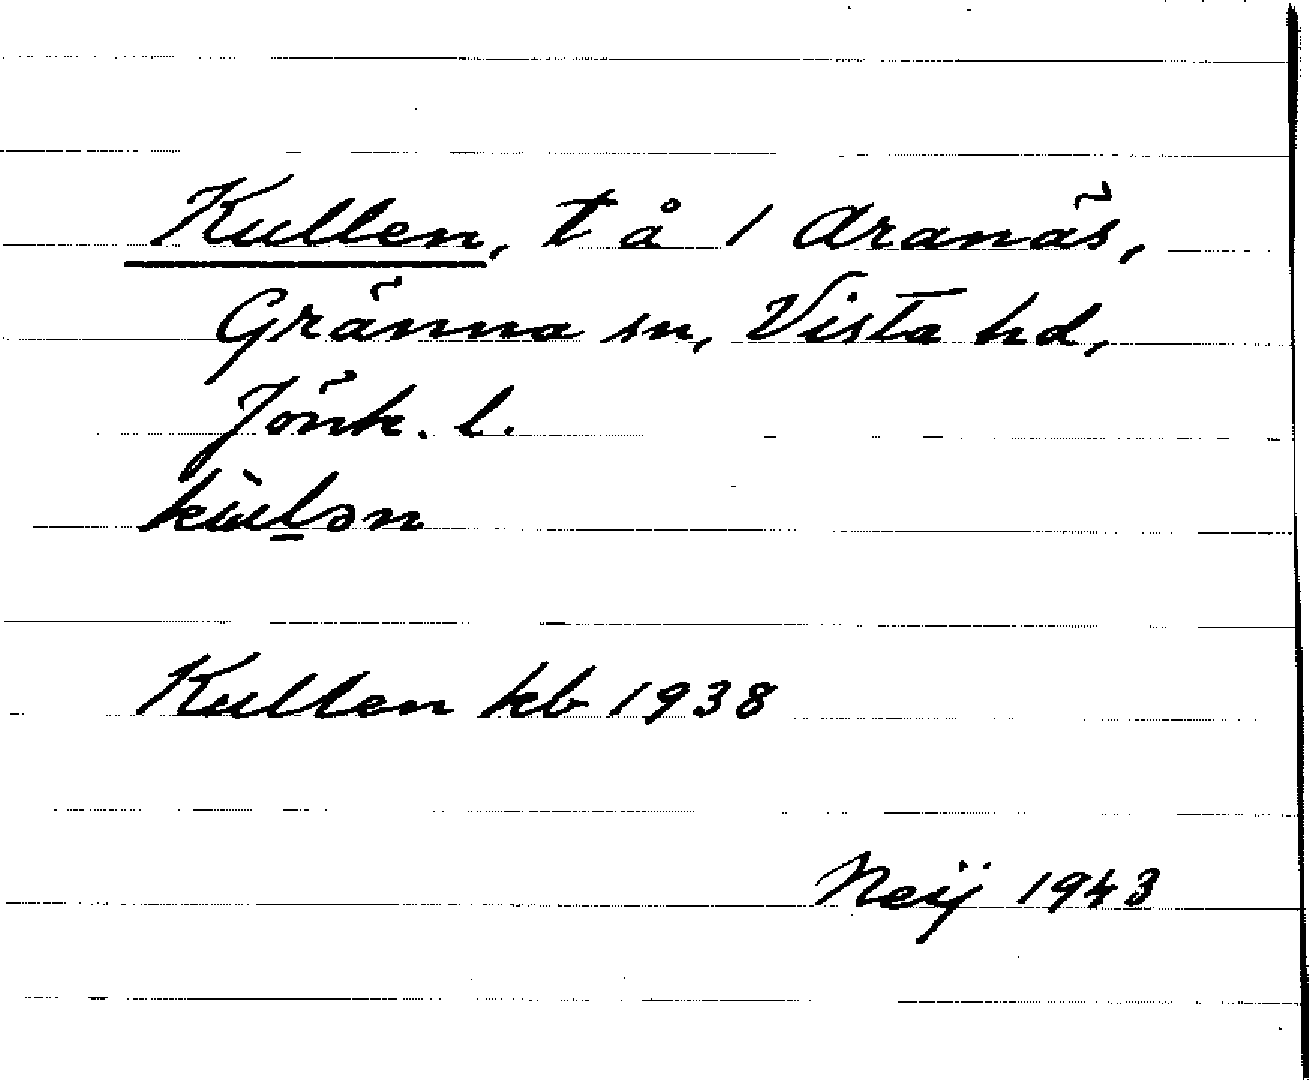 Kullen, t å 1 Aranäs,
Gränna sn, Vista hd,
Jönk. l.
kùl̠ən
Kullen kb 1938
Neij 1943